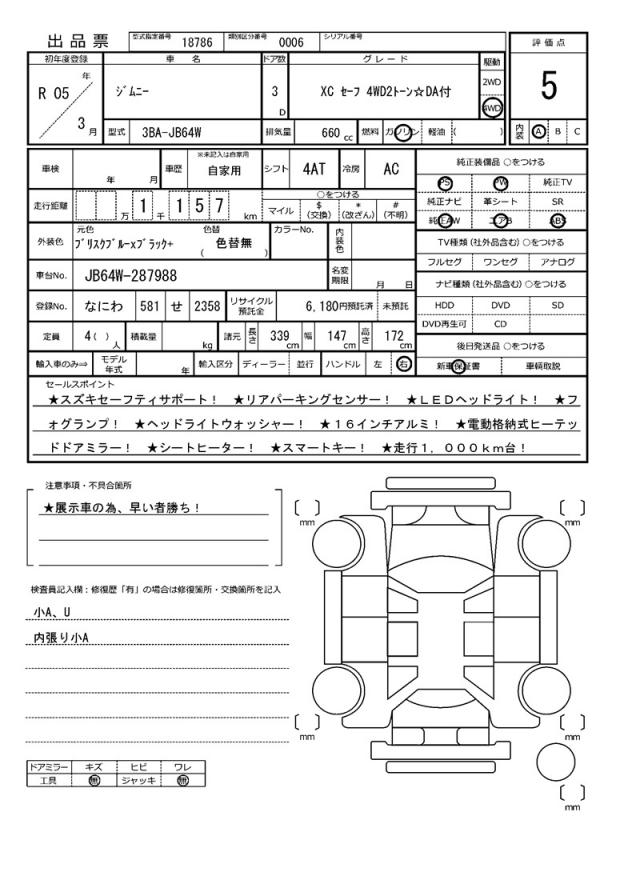 出品票 型式指定番号 18786 類別区分番号 0006 シリアル番号
評価点
5
内装 A B C
初年度登録 車名 ドア数 グレード 駆動
R 05 年 3 月
ｼﾞﾑﾆｰ 3 D XC ｾｰﾌ 4WD2ﾄｰﾝ☆DA付 2WD 4WD
型式 3BA-JB64W 排気量 660 cc 燃料 ガソリン 軽油 ( )
車検 年 月 車歴 ※未記入は自家用 自家用 シフト 4AT 冷房 AC
走行距離 万 1 千 1 5 7 km
○をつける
マイル $ (交換) * (改ざん) # (不明)
外装色 元色 ﾌﾞﾘｽｸﾌﾞﾙｰxﾌﾞﾗｯｸ+ 色替 ( 色替無 ) カラーNo. 内装色
車台No. JB64W-287988 名変期限 月 日
登録No. なにわ 581 せ 2358 リサイクル預託金 6,180円預託済 未預託
定員 4( )人 積載量 kg 諸元 長さ 339 cm 幅 147 cm 高さ 172 cm
輸入車のみ⇒ モデル年式 年 輸入区分 ディーラー 並行 ハンドル 左 右
純正装備品 ○をつける
PS PW 純正TV
純正ナビ 革シート SR
純正AW エアB ABS
TV種類 (社外品含む) ○をつける
フルセグ ワンセグ アナログ
ナビ種類 (社外品含む) ○をつける
HDD DVD SD
DVD再生可 CD
後日発送品 ○をつける
新車保証書 車輌取説
セールスポイント
★スズキセーフティサポート！ ★リアパーキングセンサー！ ★ＬＥＤヘッドライト！ ★フ
ォグランプ！ ★ヘッドライトウォッシャー！ ★１６インチアルミ！ ★電動格納式ヒーテッ
ドドアミラー！ ★シートヒーター！ ★スマートキー！ ★走行１，０００ｋｍ台！
注意事項・不具合箇所
★展示車の為、早い者勝ち！
検査員記入欄：修復歴「有」の場合は修復箇所・交換箇所を記入
小A、U
内張り小A
ドアミラー キズ ヒビ ワレ
工具 無 ジャッキ 無
mm
mm
mm
mm
mm